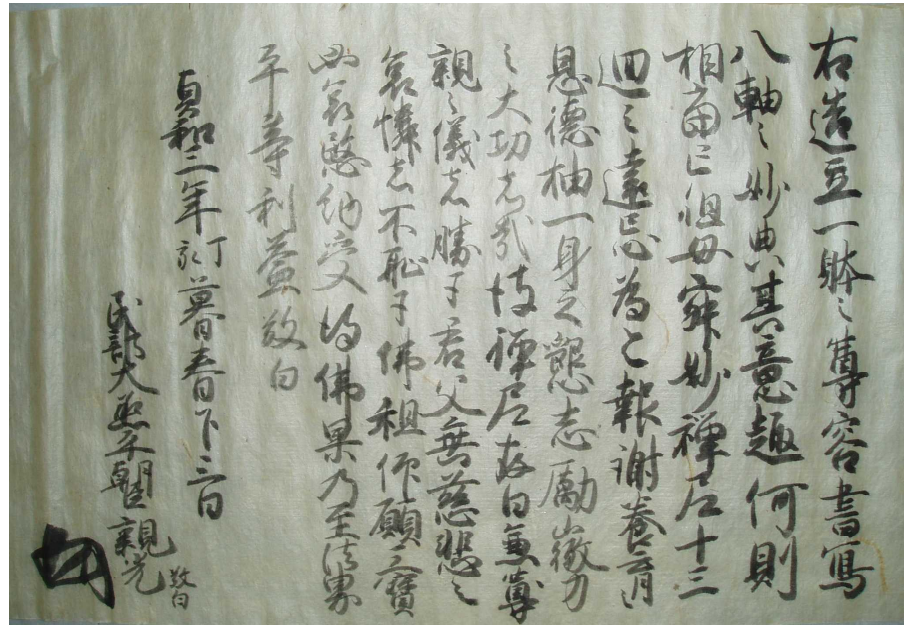 右造立一躰之尊容書寫
八軸之妙典其意趣何則
相當亡祖母寂妙禪尼十三
廻之遠忌為之報謝養育
恩德抽一身之懇志勵微力
之大功者哉禪尼在日無尊
親之儀者勝于君父無慈悲之
哀憐者不恥于佛祖仰願三寶
必哀愍納受得佛果乃至法界
平等利益敬白
貞和三年丁亥暮春下三日
民部大丞平朝臣親光敬白